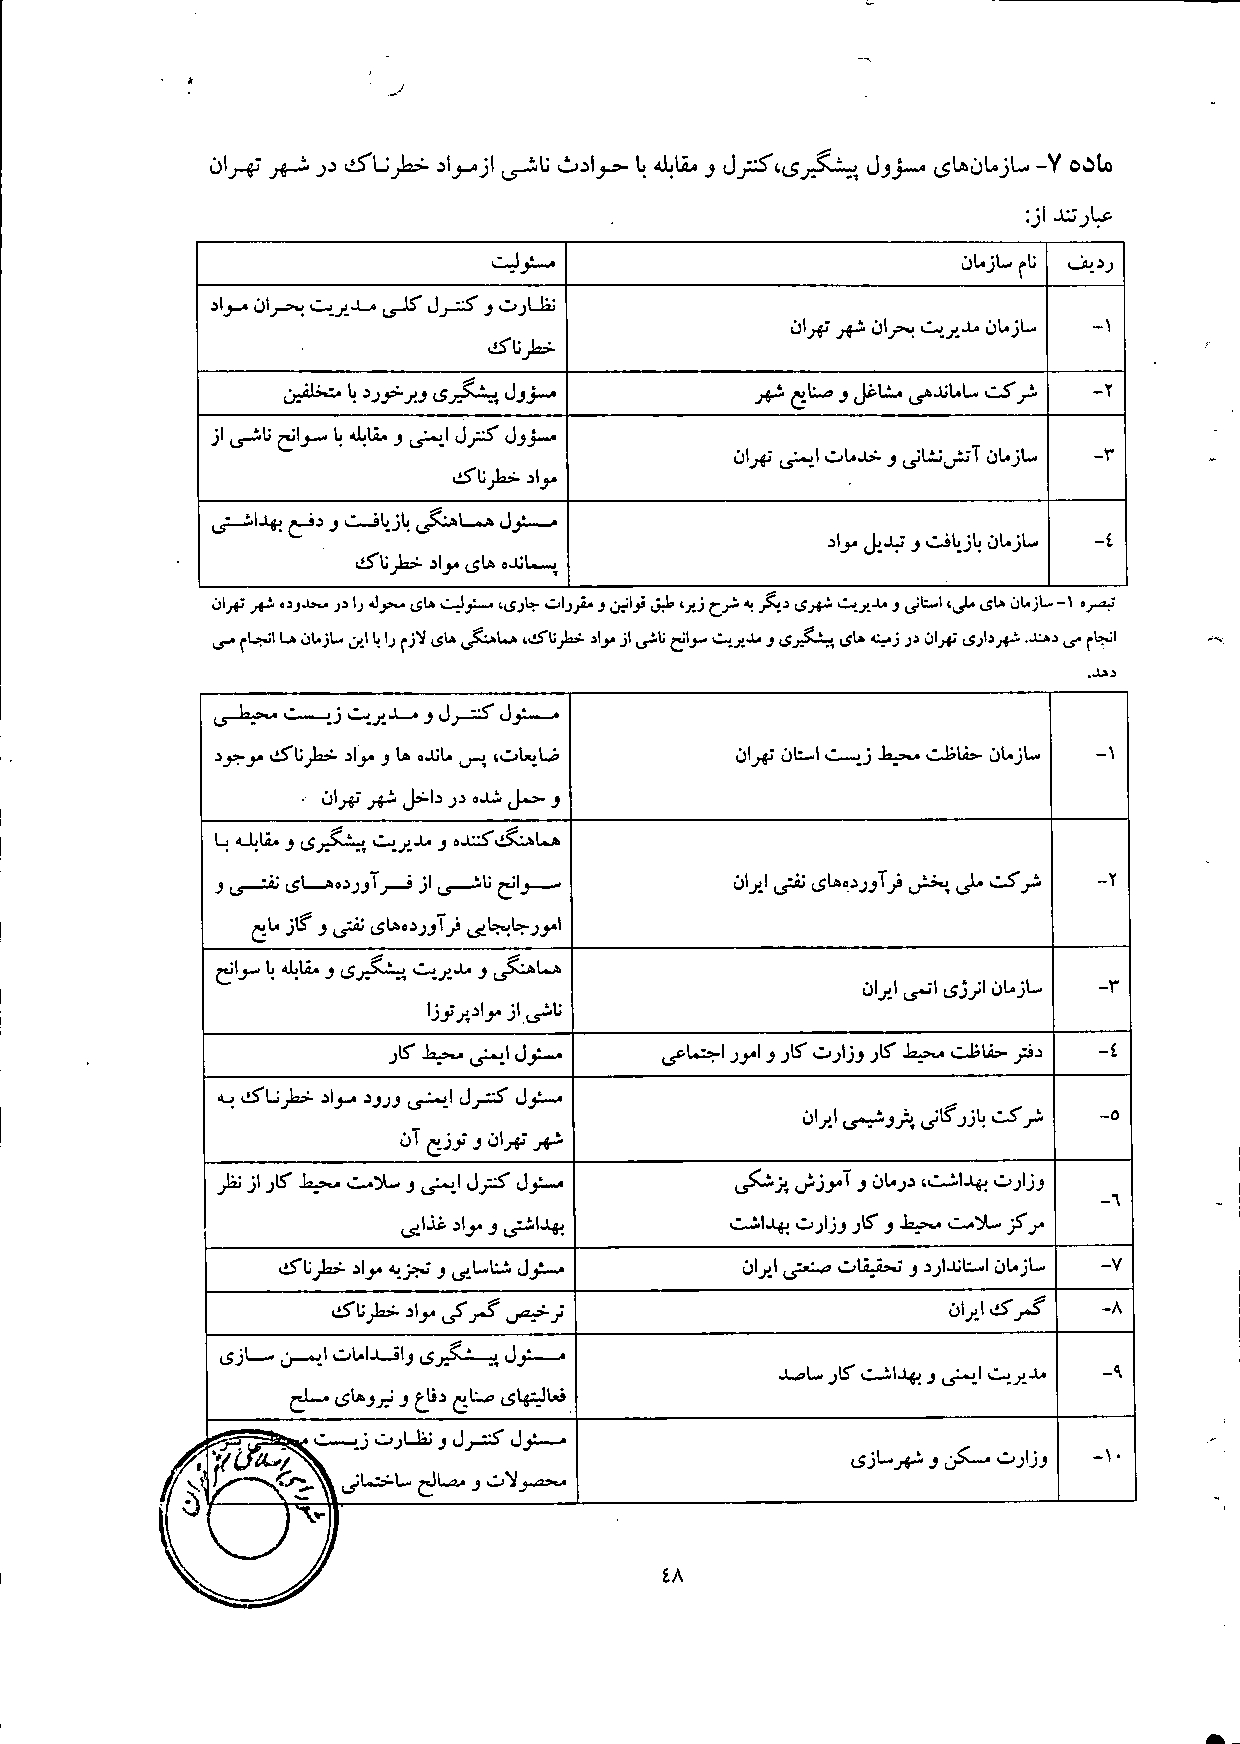 ماده ۷- سازمان‌های مسؤول پیشگیری، کنترل و مقابله با حوادث ناشی از مواد خطرناک در شهر تهران
عبارتند از:
ردیف نام سازمان مسئولیت
۱- سازمان مدیریت بحران شهر تهران نظارت و کنترل کلی مدیریت بحران مواد
خطرناک
۲- شرکت ساماندهی مشاغل و صنایع شهر مسؤول پیشگیری وبرخورد با متخلفین
۳- سازمان آتش‌نشانی و خدمات ایمنی تهران مسؤول کنترل ایمنی و مقابله با سوانح ناشی از
مواد خطرناک
٤- سازمان بازیافت و تبدیل مواد مسئول هماهنگی بازیافت و دفع بهداشتی
پسمانده های مواد خطرناک
تبصره ۱- سازمان های ملی، استانی و مدیریت شهری دیگر به شرح زیر، طبق قوانین و مقررات جاری، مسئولیت های محوله را در محدوده شهر تهران
انجام می دهند. شهرداری تهران در زمینه های پیشگیری و مدیریت سوانح ناشی از مواد خطرناک، هماهنگی های لازم را با این سازمان ها انجام می
دهد.
۱- سازمان حفاظت محیط زیست استان تهران مسئول کنترل و مدیریت زیست محیطی
ضایعات، پس مانده ها و مواد خطرناک موجود
و حمل شده در داخل شهر تهران
۲- شرکت ملی پخش فرآورده‌های نفتی ایران هماهنگ‌کننده و مدیریت پیشگیری و مقابله با
سوانح ناشی از فرآورده‌های نفتی و
امورجابجایی فرآورده‌های نفتی و گاز مایع
۳- سازمان انرژی اتمی ایران هماهنگی و مدیریت پیشگیری و مقابله با سوانح
ناشی از موادپرتوزا
٤- دفتر حفاظت محیط کار وزارت کار و امور اجتماعی مسئول ایمنی محیط کار
٥- شرکت بازرگانی پتروشیمی ایران مسئول کنترل ایمنی ورود مواد خطرناک به
شهر تهران و توزیع آن
٦- وزارت بهداشت، درمان و آموزش پزشکی مسئول کنترل ایمنی و سلامت محیط کار از نظر
مرکز سلامت محیط و کار وزارت بهداشت بهداشتی و مواد غذایی
۷- سازمان استاندارد و تحقیقات صنعتی ایران مسئول شناسایی و تجزیه مواد خطرناک
۸- گمرک ایران ترخیص گمرکی مواد خطرناک
۹- مدیریت ایمنی و بهداشت کار ساصد مسئول پیشگیری واقدامات ایمن سازی
فعالیتهای صنایع دفاع و نیروهای مسلح
۱۰- وزارت مسکن و شهرسازی مسئول کنترل و نظارت زیست محیطی
محصولات و مصالح ساختمانی
شورای اسلامی شهر تهران
٤۸